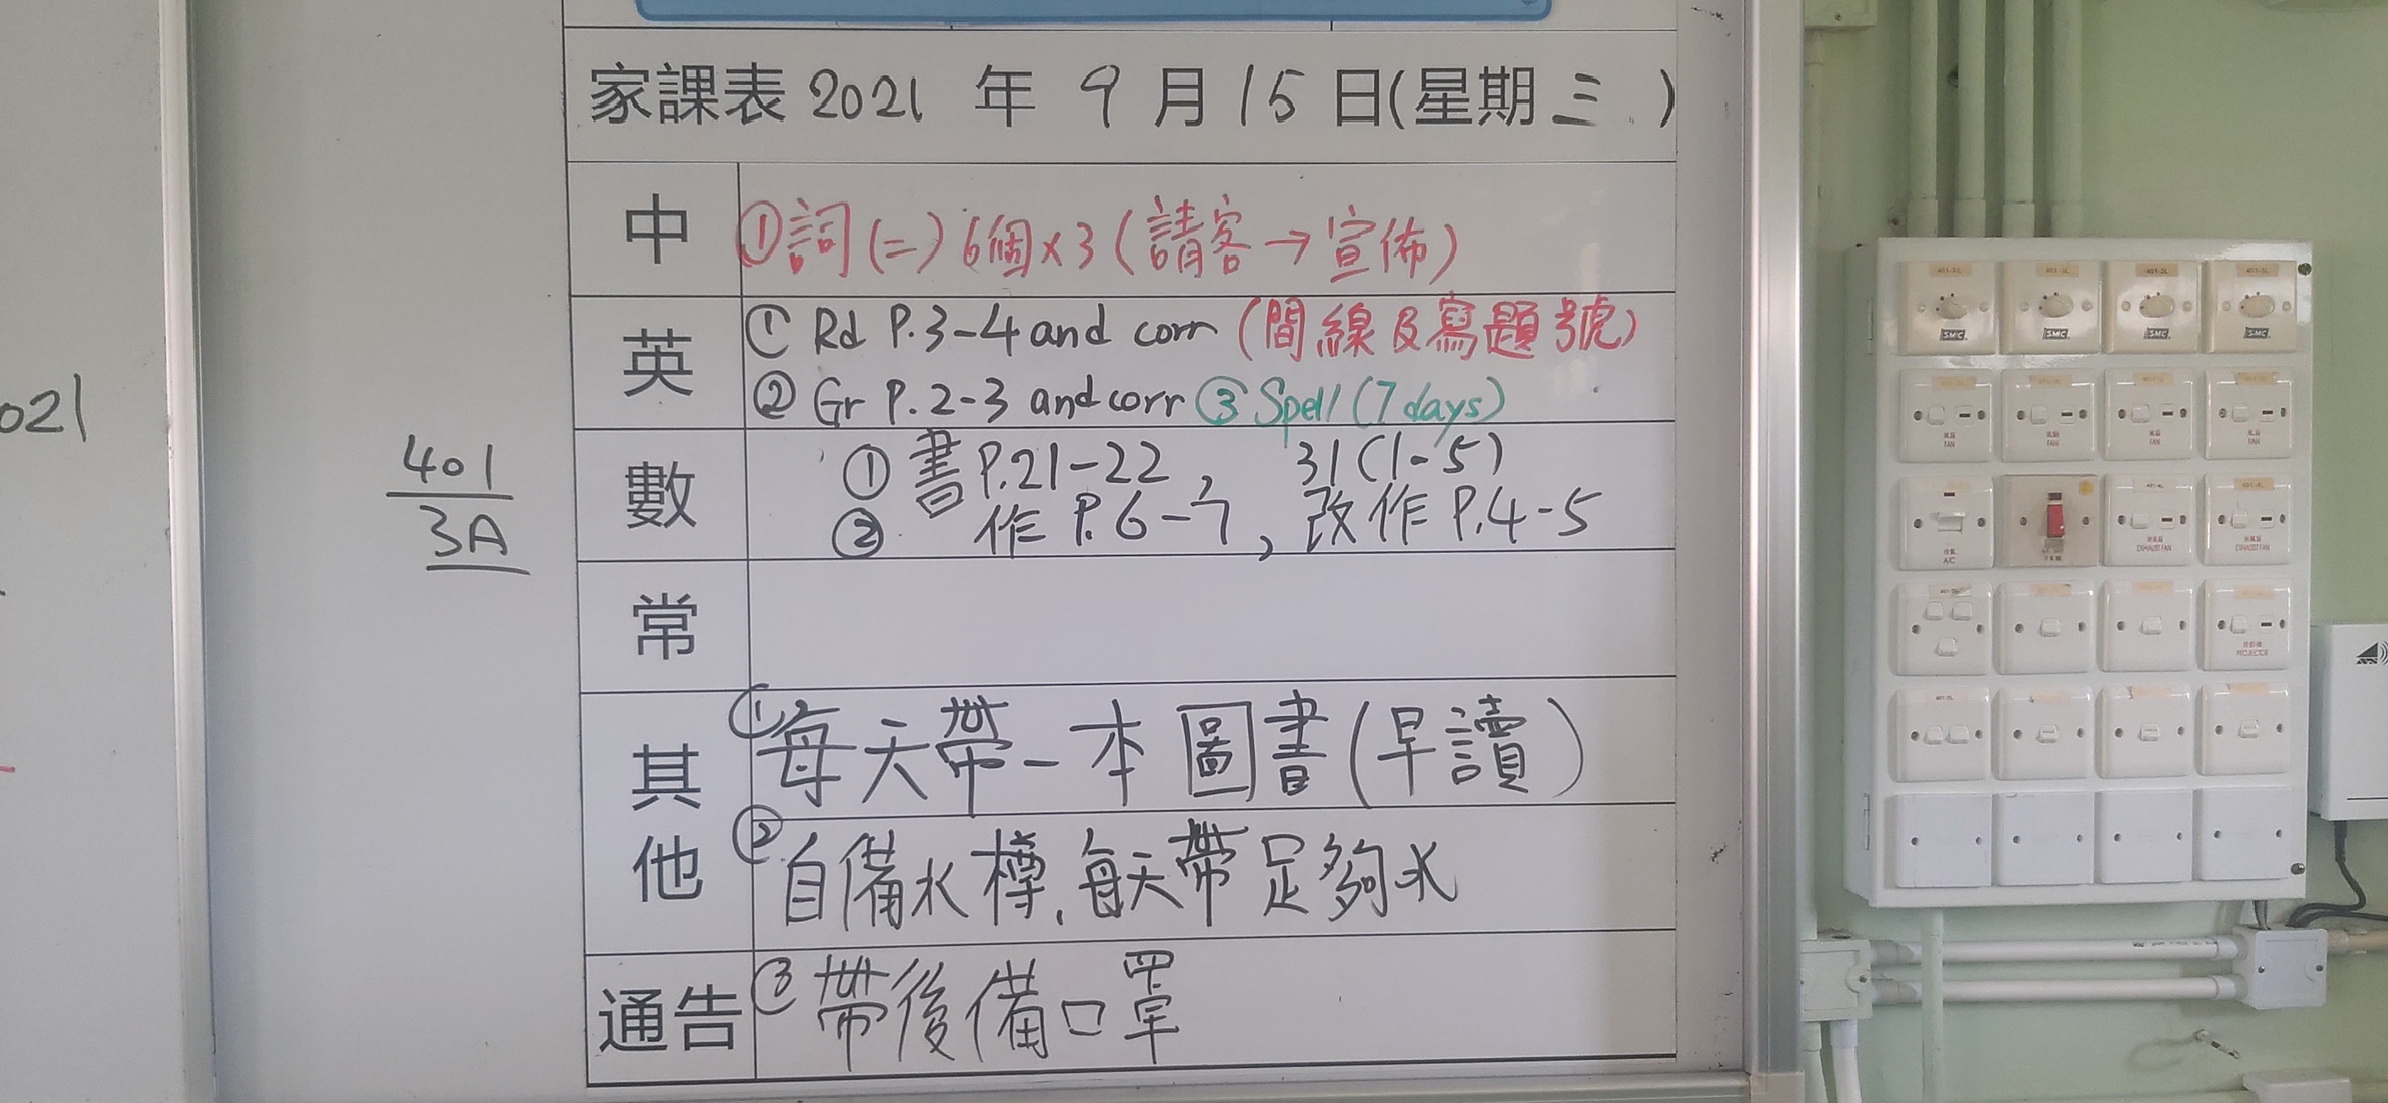 家課表 2021 年 9 月 15 日(星期 三 )
中 ①詞(二)6個×3(請客→宣佈)
英 ① Rd P.3-4 and corr (間線及寫題號)
② Gr P.2-3 and corr ③ Spell (7 days)
數 ① 書 P.21-22, 31(1-5)
② 作 P.6-7, 改作 P.4-5
常
其他 ① 每天帶一本圖書(早讀)
② 自備水樽,每天帶足夠水
通告 ③ 帶後備口罩
021
401
3A
SMC SMC SMC SMC
FAN FAN FAN FAN
A/C EXHAUST FAN EXHAUST FAN
PROJECTOR